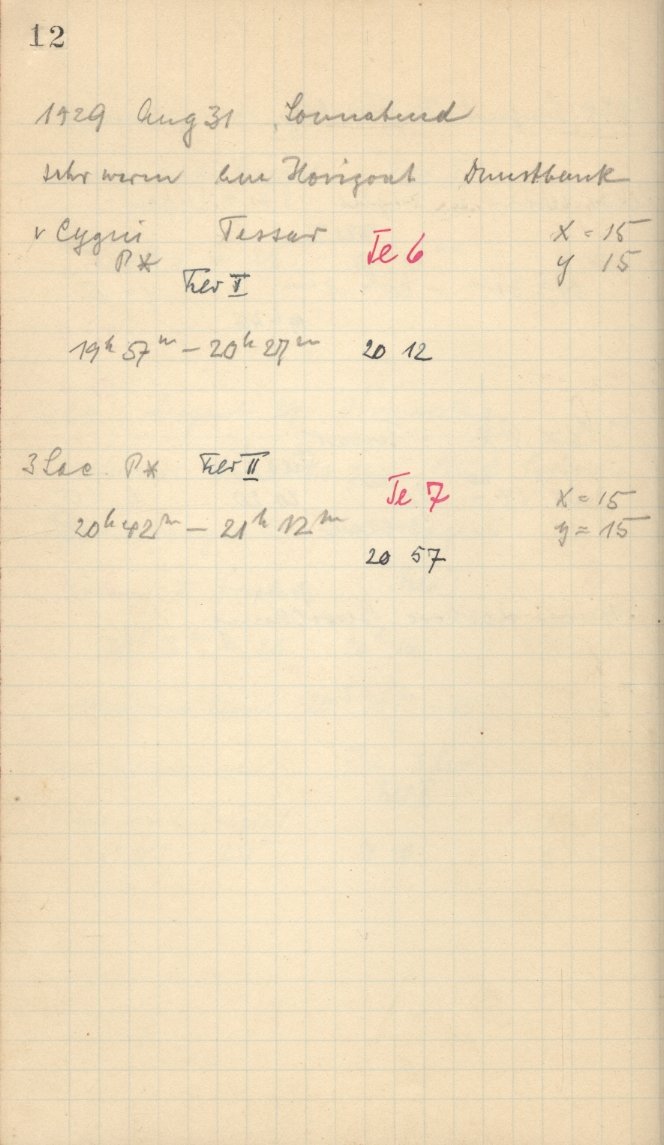 12
1929 Aug 31 Sonnabend
sehr warm am Horizont Dunstbank
ν Cygni Tessar Te 6 x = 15
P* y 15
II
19h 57m – 20h 27m 20 12
3 Lac P* II
Te 7 x = 15
20h 42m – 21h 12m y = 15
20 57